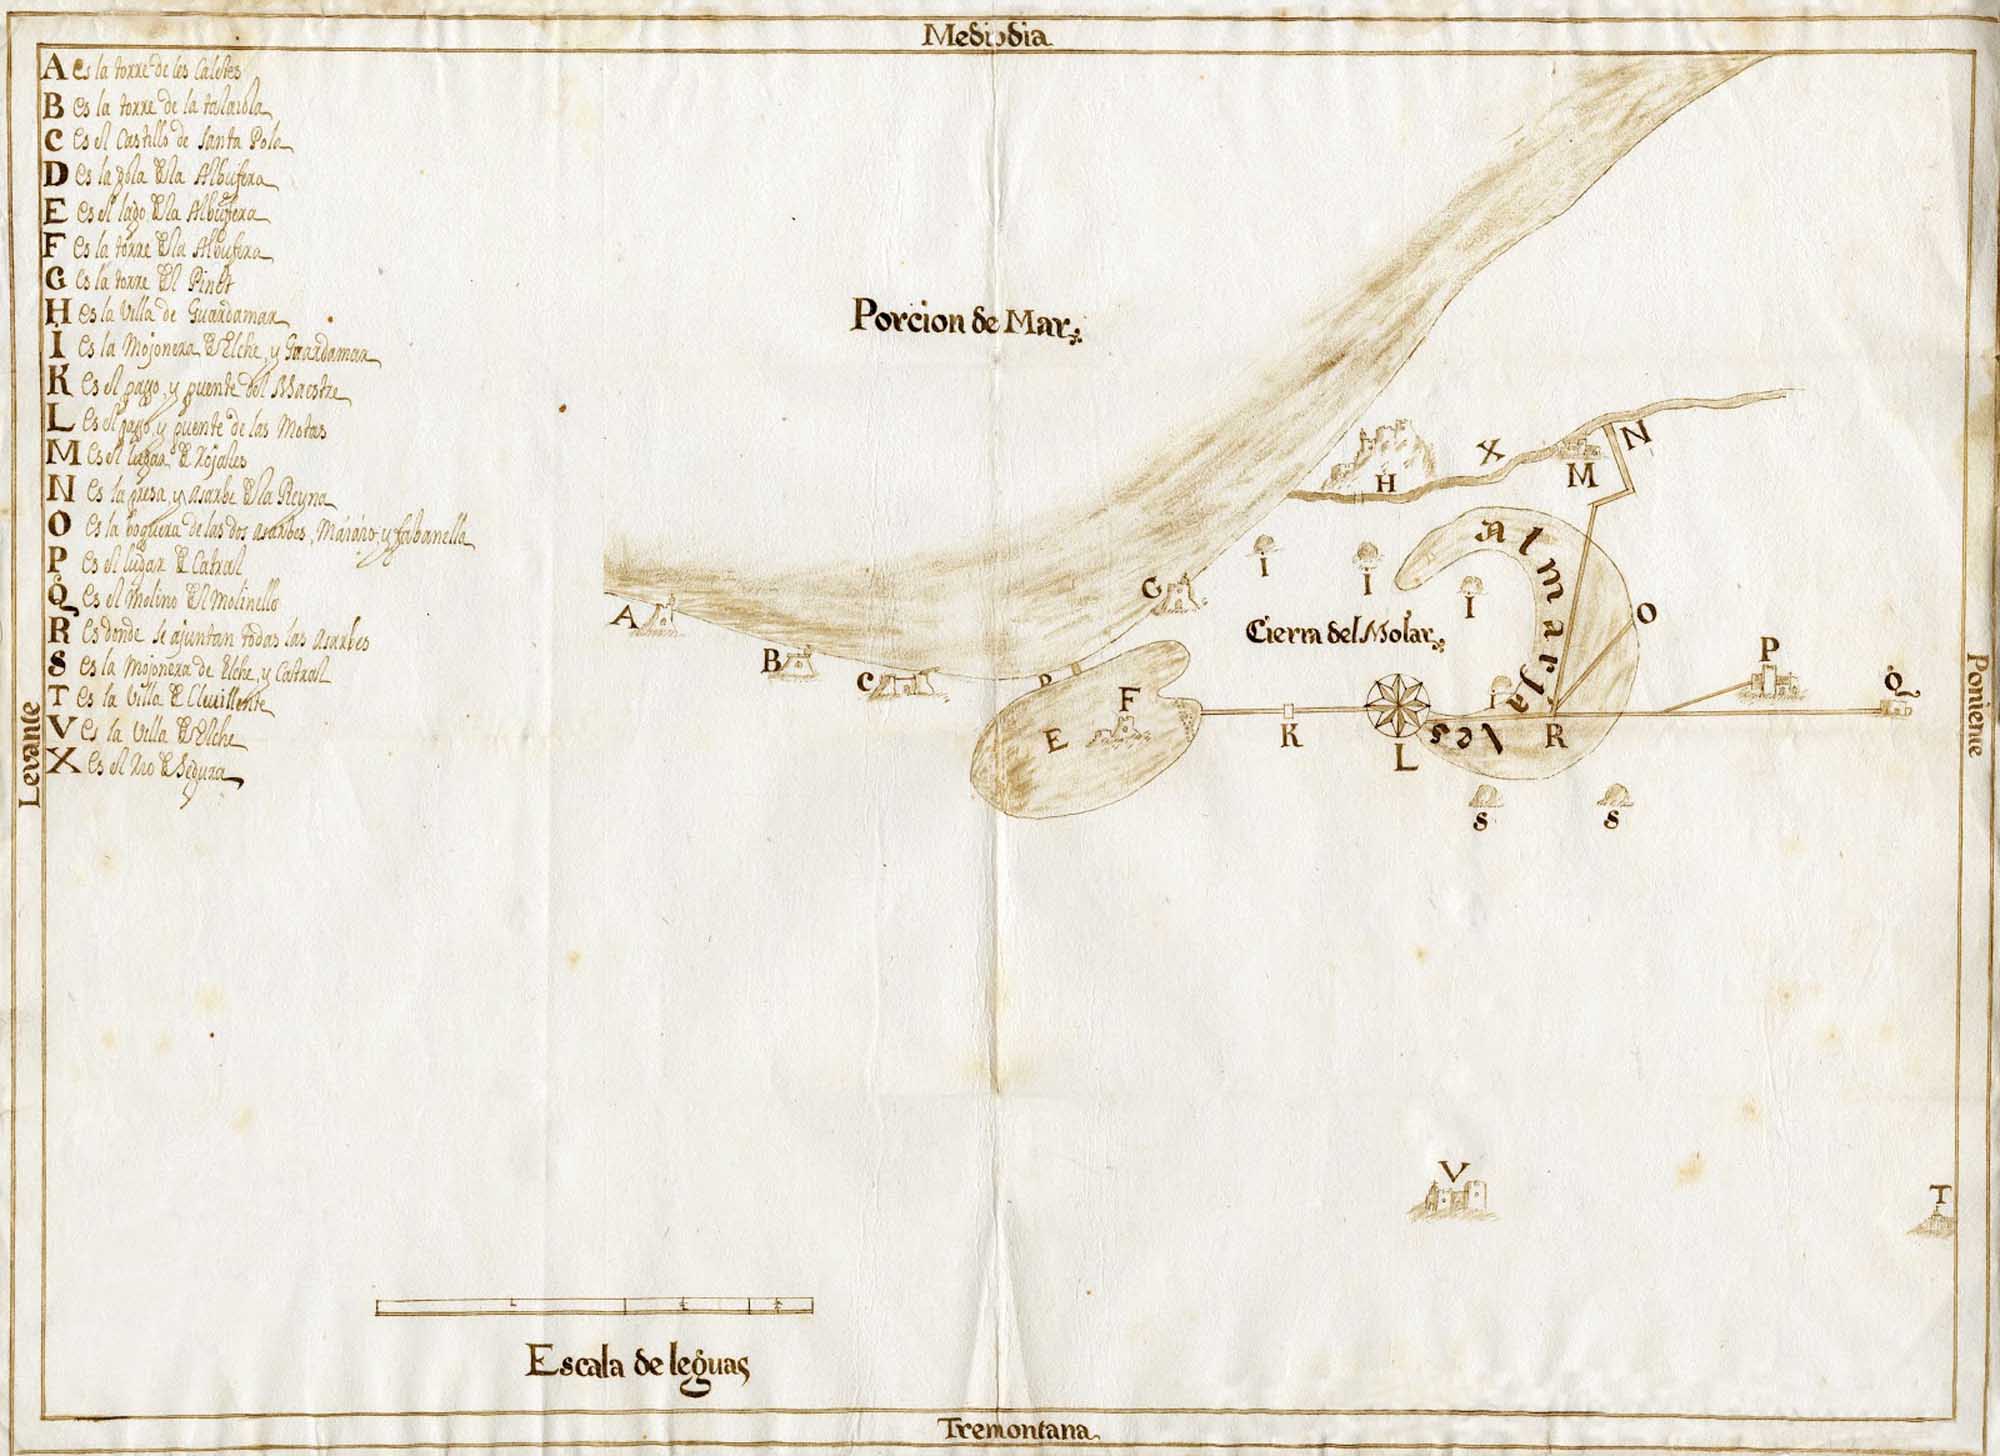 Mediodia
A es la torre de les Caletes
B es la torre de la talaiola
C es el Castillo de Santa Pola
D es la gola de la Albufera
E es el lago de la Albufera
F es la torre de la Albufera
G es la torre del Pinet
H es la Villa de Guardamar
I es la Mojonera de Elche, y Guardamar
K es el passo, y puente del Maestre
L es el passo, y puente de las Motas
M es el lugar de Rojales
N es la presa, y asarbe de la Reyna
O es la boguera de las dos asarbes,
P es el lugar de Catral
Q es el Molino del Molinello
R es donde se ajuntan todas las asarbes
S es la Mojonera de Elche, y Catral
T es la Villa de Clevillente
V es la Villa de Elche
X es el Rio de Segura
Levante
Porcion de Mar
X
N
M
H
Almarjales
I
I
I
I
G
A
O
Cierra del Molar
B
C
D
P
Q
F
E
K
L
R
S
S
Poniente
V
T
Escala de leguas
Tremontana